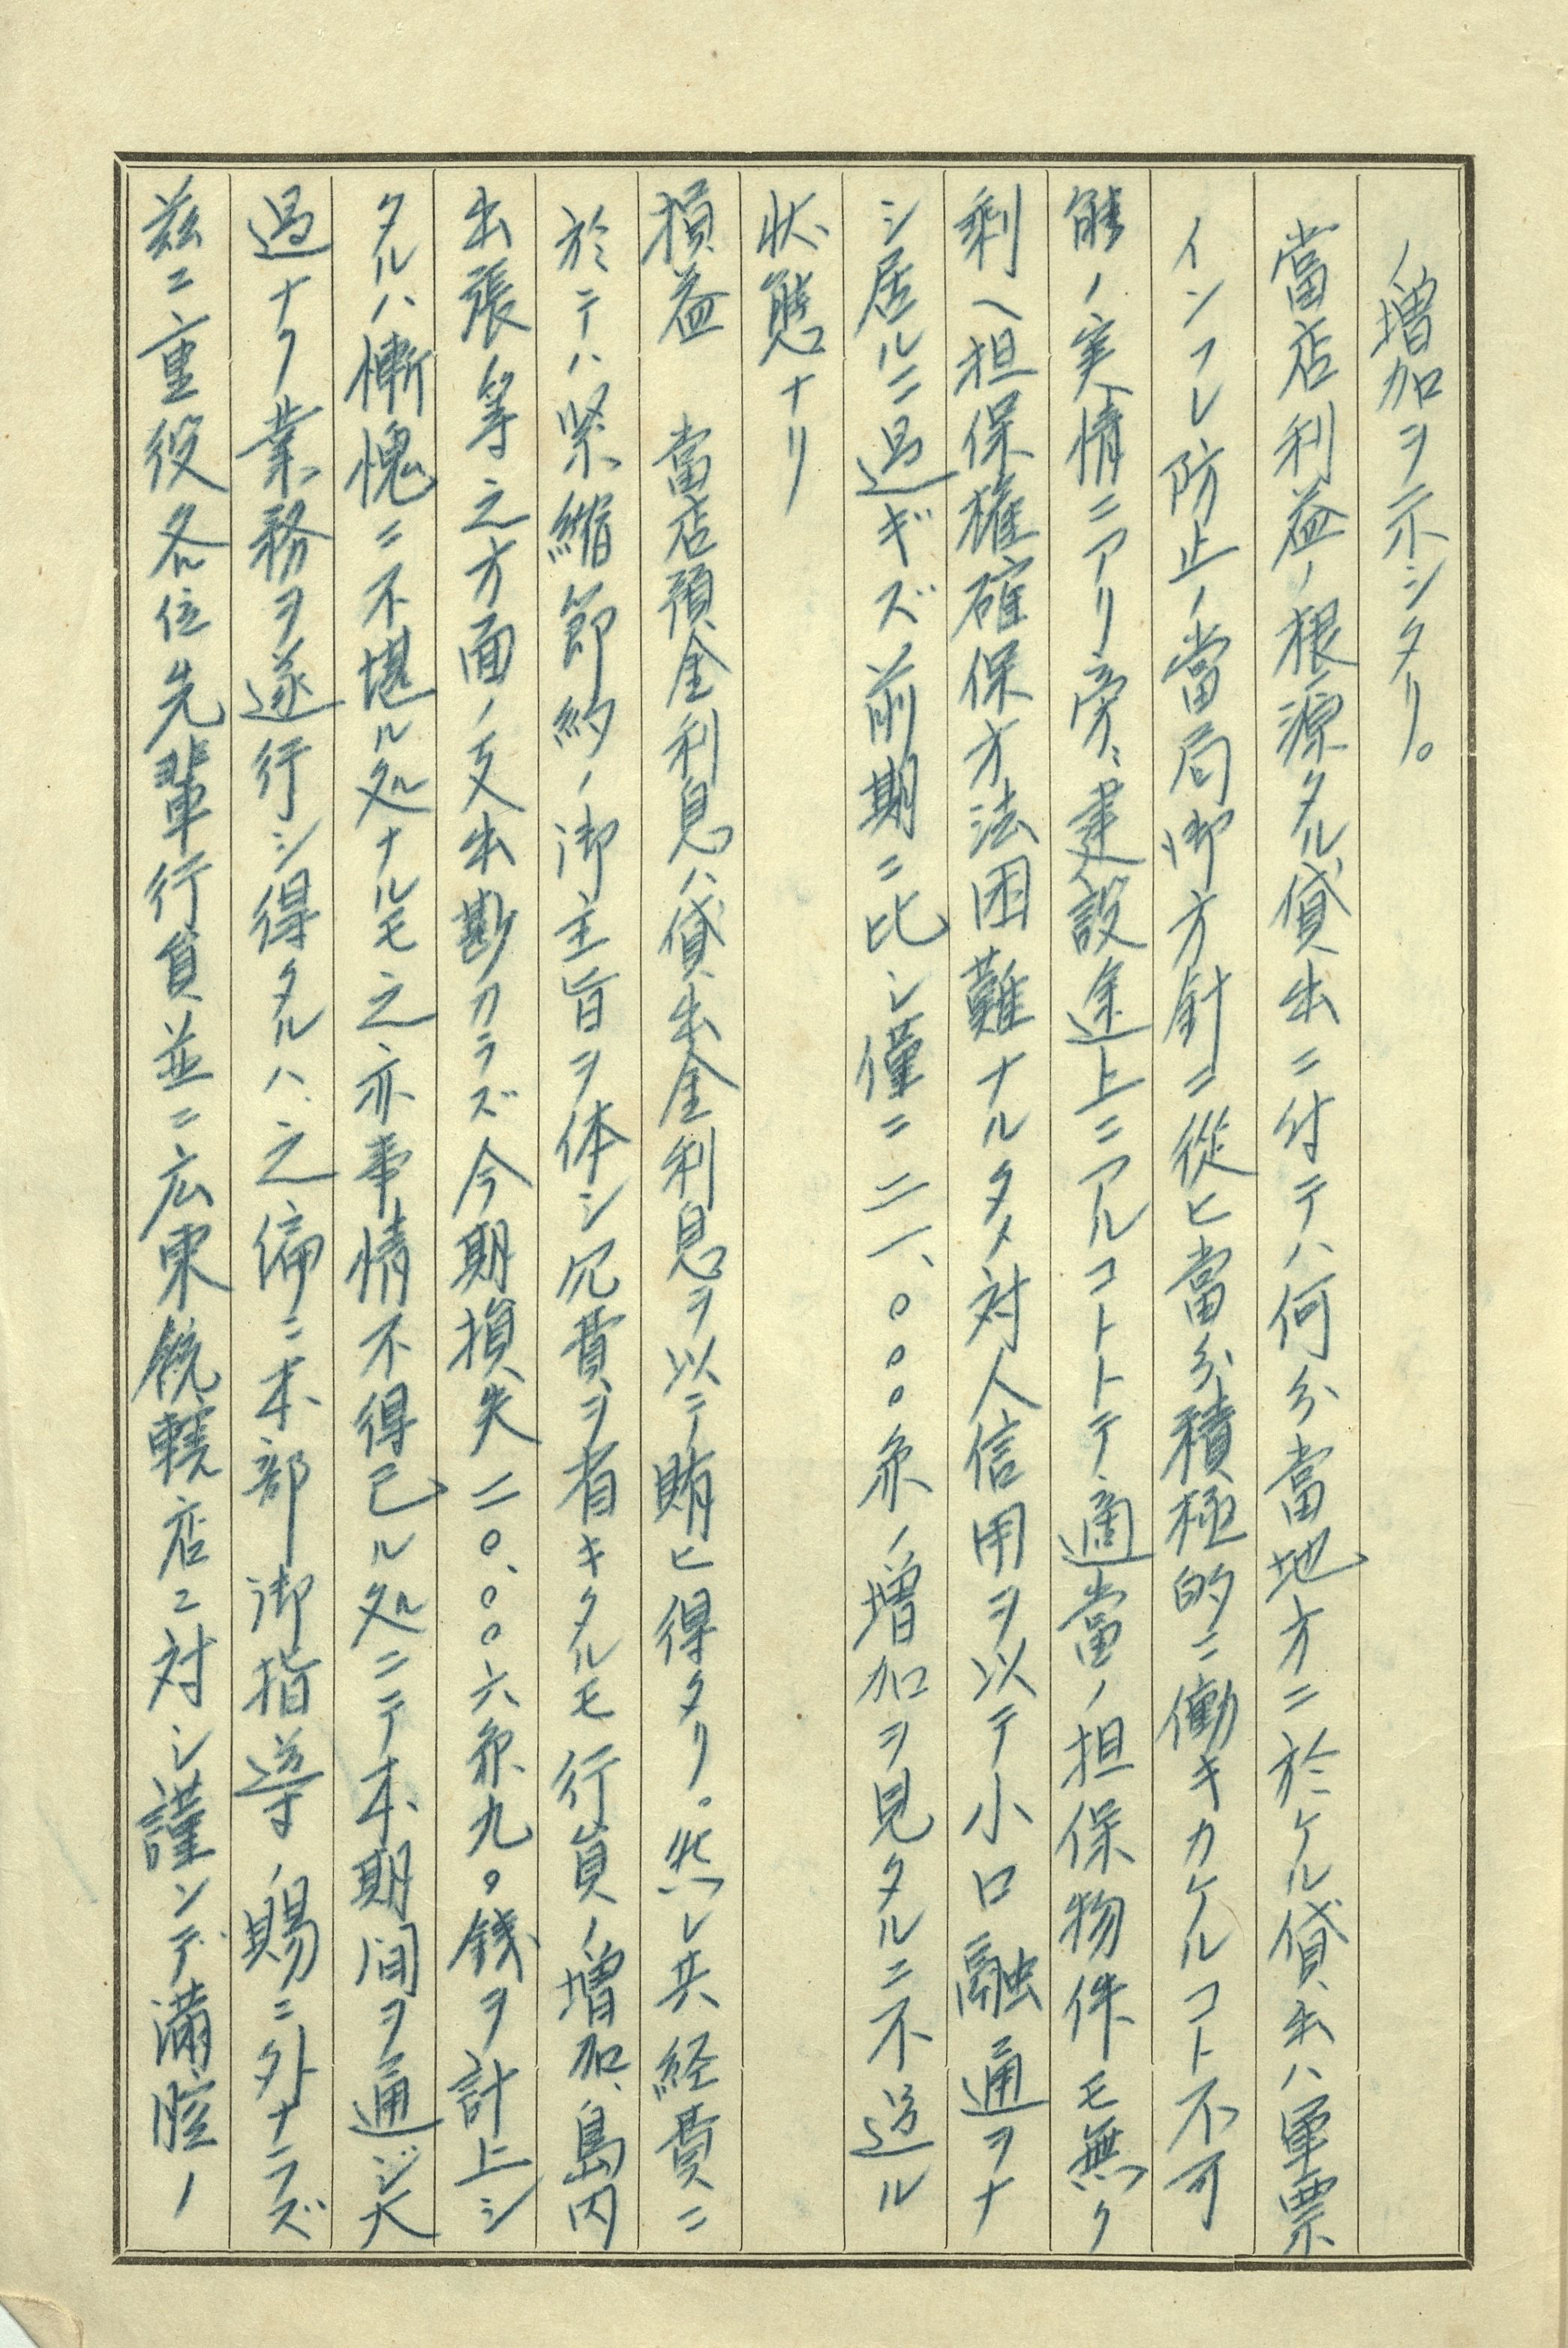 ノ増加ヲ示シタリ。
當店利益ノ根源タル貸出ニ付テハ何分當地方ニ於ケル貸出ハ軍票
インフレ防止ノ當局御方針ニ從ヒ當分積極的ニ働キカケルコト不可
能ノ実情ニアリ旁々建設途上ニアルコトトテ適當ノ担保物件モ無ク
剰ヘ担保権確保方法困難ナルタメ対人信用ヲ以テ小口融通ヲナ
シ居ルニ過ギズ前期ニ比シ僅ニ二一、〇〇〇余ノ増加ヲ見タルニ不過ル
状態ナリ
損益　當店預金利息ハ貸出金利息ヲ以テ賄ヒ得タリ。然レ共経費ニ
於テハ緊縮節約ノ御主旨ヲ体シ冗費ヲ省キタルモ行員ノ増加、島内
出張等之方面ノ支出尠カラズ今期損失二〇、〇〇六余九〇銭ヲ計上シ
タルハ慚愧ニ不堪ル処ナルモ之亦事情不得已ル処ニテ本期間ヲ通ジ大
過ナク業務ヲ遂行シ得タルハ之偏ニ本部御指導ノ賜ニ外ナラズ
茲ニ重役各位先輩行員並ニ広東統轄店ニ対シ謹ンデ満腔ノ